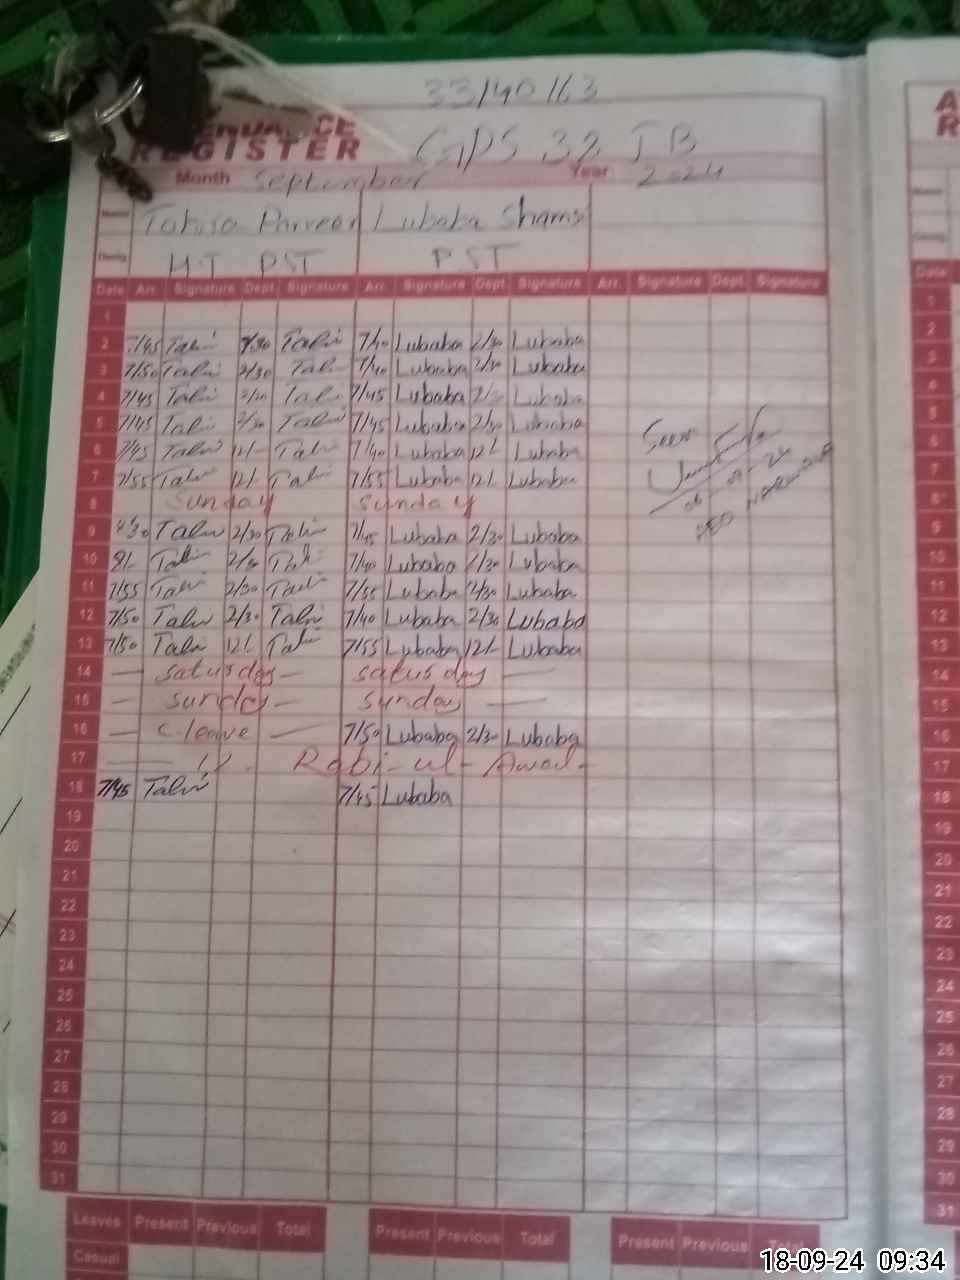 33/40/63
REGISTER GPS 32 JB
Month September Year 2024
Name Tahira Parveen Lubaba Shams
Desig. H.T PST PST
Date Arr. Signature Dept. Signature Arr. Signature Dept. Signature Arr. Signature Dept. Signature
1
2 7/45 Tahir 2/30 Tahir 7/40 Lubaba 2/30 Lubaba
3 7/50 Tahir 2/30 Tahir 7/40 Lubaba 2/30 Lubaba
4 7/45 Tahir 2/30 Tahir 7/45 Lubaba 2/30 Lubaba
5 7/45 Tahir 2/30 Tahir 7/45 Lubaba 2/30 Lubaba
6 7/45 Tahir 12/- Tahir 7/40 Lubaba 12/- Lubaba
7 7/55 Tahir 12/- Tahir 7/55 Lubaba 12/- Lubaba
8 Sunday Sunday
Seen
06-09-24
9 Tahir 2/30 Tahir 7/45 Lubaba 2/30 Lubaba
10 8/- Tahir 2/30 Tahir 7/40 Lubaba 2/30 Lubaba
11 7/55 Tahir 2/30 Tahir 7/55 Lubaba 2/30 Lubaba
12 7/50 Tahir 2/30 Tahir 7/40 Lubaba 2/30 Lubaba
13 7/50 Tahir 12/- Tahir 7/55 Lubaba 12/- Lubaba
14 — saturday — saturday —
15 — sunday — sunday —
16 — C-leave — 7/50 Lubaba 2/30 Lubaba
17 — 12. Rabi-ul-Awal-
18 7/45 Tahir 7/45 Lubaba
19
20
21
22
23
24
25
26
27
28
29
30
31
Leaves Present Previous Total Present Previous Total Present Previous Total
Casual
18-09-24 09:34